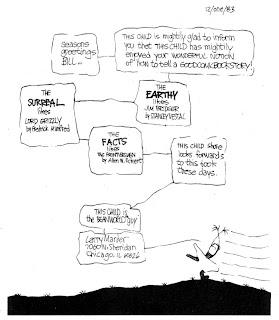 12/DEC/83
seasons
greetings
BILL...
THIS CHILD is mightily glad to inform
you that THIS CHILD has mightily
enjoyed your WONDERFUL NOTION
of "HOW TO TELL A GOOD COMIC BOOK STORY!"
THE
SURREAL
likes
LORD GRIZZLY
by Fredrick Manfred
THE
EARTHY
likes
JIM BRIDGER
by STANLEY VESTAL
THE
FACTS
likes
THE FRONTIERSMEN
by Allan W. Eckert
THIS CHILD shore
looks forwards
to this took
these days.
THIS CHILD is
the BEANWORLD guy
Larry Marder
7060 N. Sheridan
Chicago, IL 60626